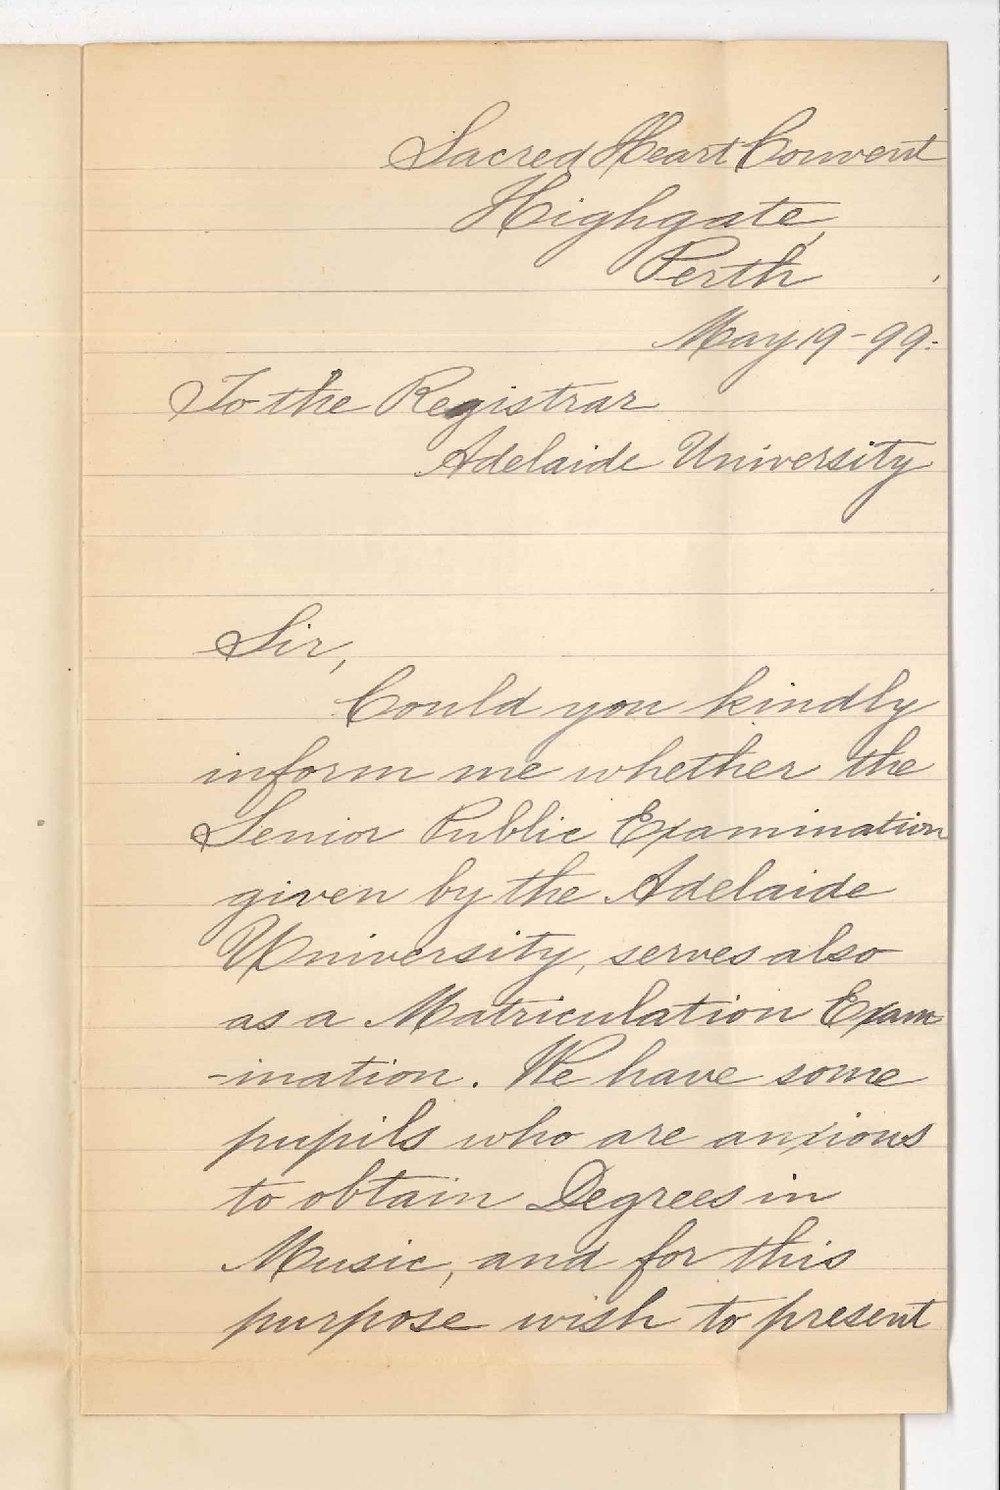 Sacred Heart Convent
Highgate,
Perth
May 19-99.
To the Registrar
Adelaide University
Sir,
Could you kindly
inform me whether the
Senior Public Examination
given by the Adelaide
University, serves also
as a Matriculation Exam
-ination. We have some
pupils who are anxious
to obtain Degrees in
Music, and for this
purpose wish to present